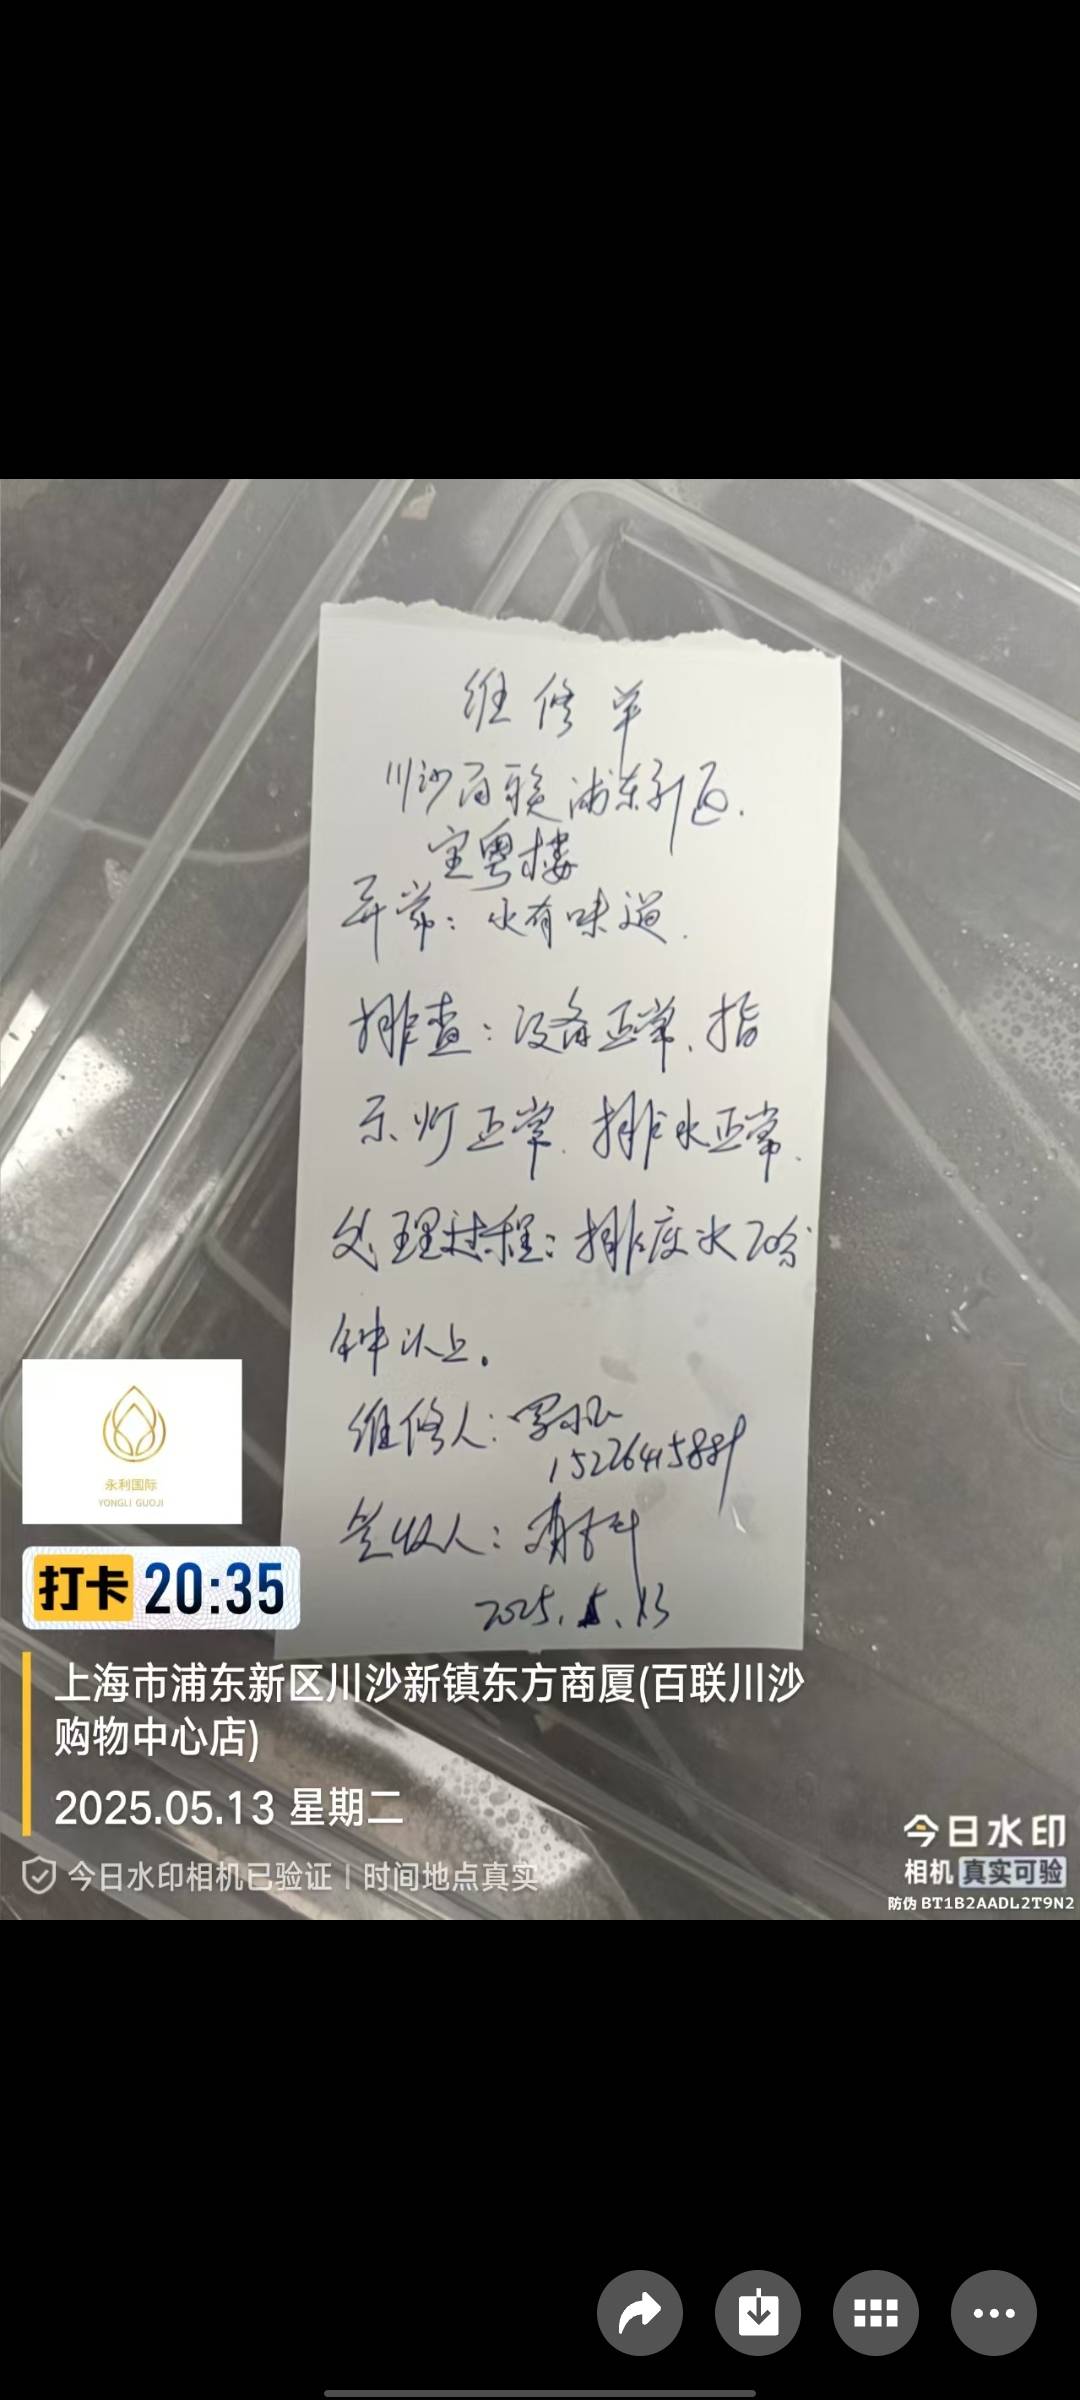 维修单
川沙百联浦东新区.
宝粤楼
异常：水有味道.
排查：设备正常.指
示灯正常.排水正常.
处理过程：排废水20分
钟以上。
维修人：
签收人：
2025.5.13
永利国际
YONGLI GUOJI
打卡 20:35
上海市浦东新区川沙新镇东方商厦(百联川沙
购物中心店)
2025.05.13 星期二
今日水印相机已验证 | 时间地点真实
今日水印
相机 真实可验
防伪 BT1B2AADL2T9N2